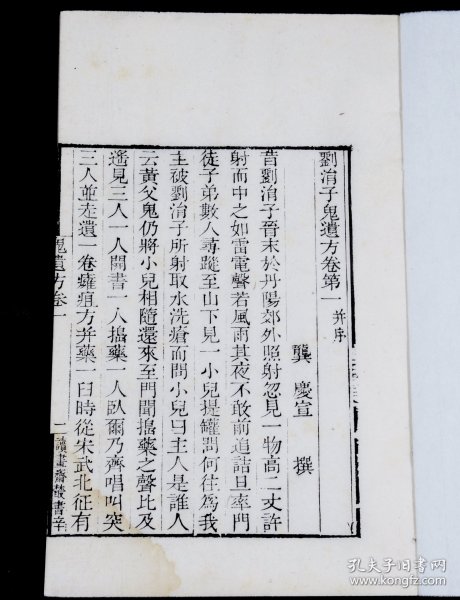 劉涓子鬼遺方卷第一 并序
龔慶宣 撰
昔劉涓子晉末於丹陽郊外照射忽見一物高二丈許
射而中之如雷電聲若風雨其夜不敢前追詰旦率門
徒子弟數人尋蹤至山下見一小兒提罐問何往爲我
主被劉涓子所射取水洗瘡而問小兒曰主人是誰人
云黃父鬼仍將小兒相隨還來至門聞搗藥之聲比及
遙見三人一人開書一人搗藥一人臥爾乃齊唱叫突
三人並走遺一卷癰疽方并藥一臼時從宋武北征有
鬼遺方卷一
一
讀畫齋叢書辛
孔夫子旧书网
www.kongfz.com